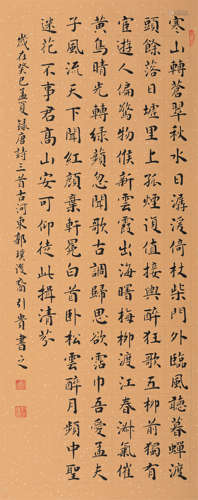 寒山轉蒼翠秋水日潺湲倚杖柴門外臨風聽暮蟬渡
頭餘落日墟里上孤煙復值接輿醉狂歌五柳前獨有
宦遊人偏驚物候新雲霞出海曙梅柳渡江春淑氣催
黃鳥晴光轉綠蘋忽聞歌古調歸思欲霑巾吾愛孟夫
子風流天下聞紅顏棄軒冕白首臥松雲醉月頻中聖
迷花不事君高山安可仰徒此揖清芬
歲在癸巳孟夏錄唐詩三首古河東郡璞浚齋引貴書之